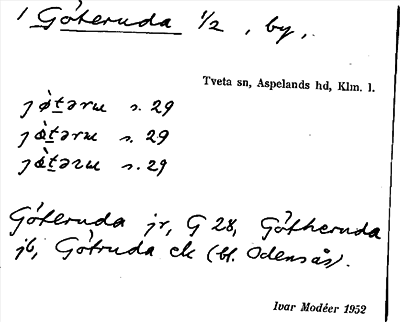 1 Göteruda 1/2, by,.
Tveta sn, Aspelands hd, Klm. l.
jø̀təru s. 29
jὰtəru s. 29
jὰtəru s. 29
Göteruda jr, G 28, Götheruda
jb, Götruda ek (bl. Odensås).
Ivar Modéer 1952